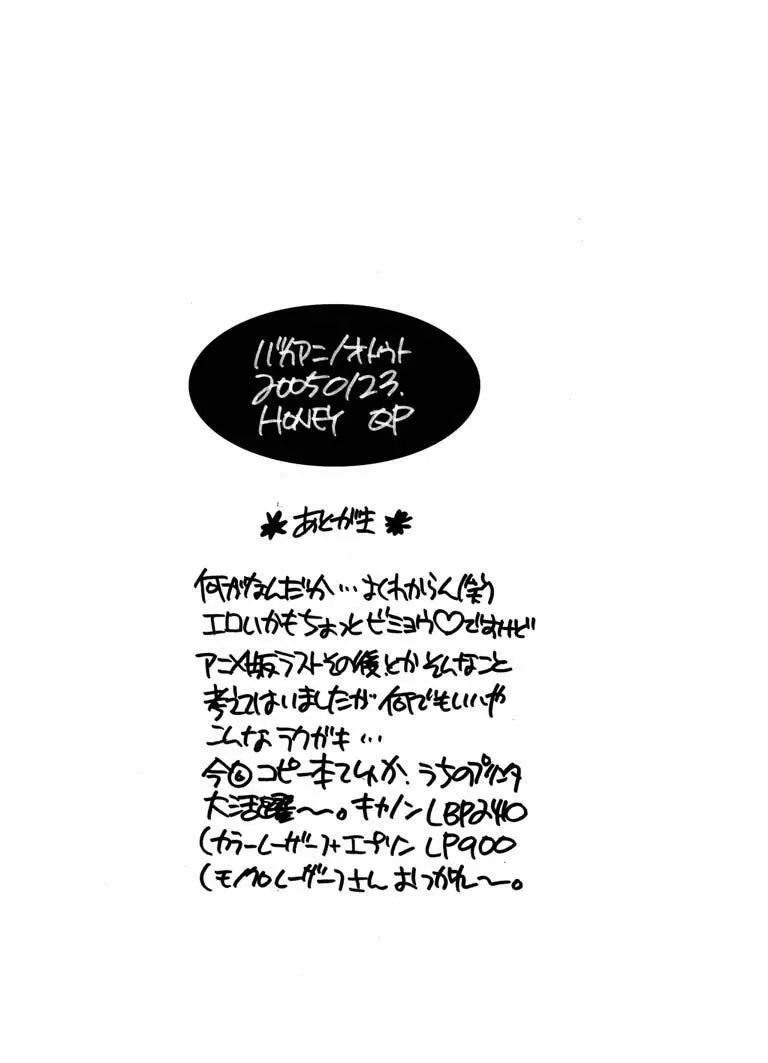 バカアニ/オトウト
20050123.
HONEY QP
* あとがき *
何がなんだか…よくわからん(笑)
エロいかもちょっとビミョウ♡ですけど
アニメ版ラストその後とかそんなこと
考えてはいましたが何でもいいや
こんなラクガキ…
今回コピー本てゆか、うちのプリンタ
大活躍〜。キヤノンLBP2410
(カラーレーザー)+エプソンLP900
(モノクロレーザー)さんおつかれ〜。